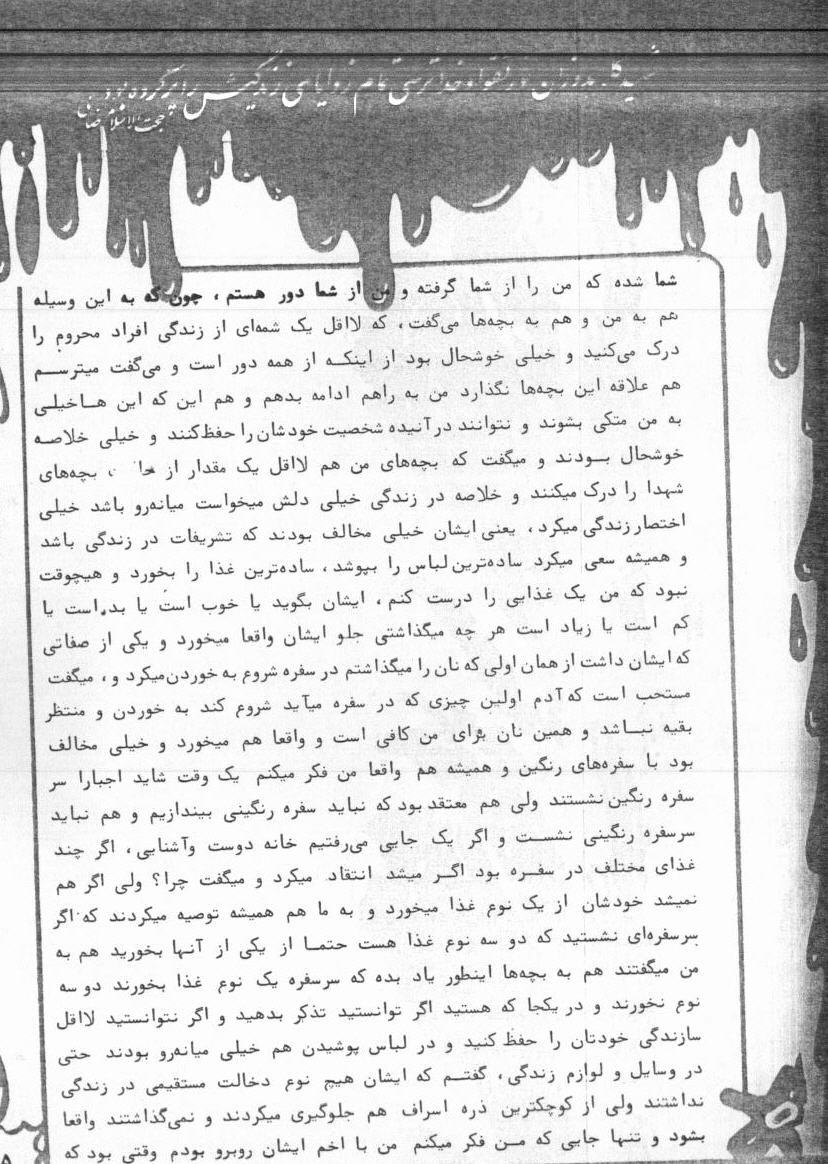 تمام زوایای زندگیش را پر کرده بود
شما شده که من را از شما گرفته و من از شما دور هستم ، چون که به این وسیله
هم به من و هم به بچه‌ها می‌گفت ، که لااقل یک شمه‌ای از زندگی افراد محروم را
درک می‌کنید و خیلی خوشحال بود از اینکه از همه دور است و می‌گفت میترسم
هم علاقه این بچه‌ها نگذارد من به راهم ادامه بدهم و هم این که این ها خیلی
به من متکی بشوند و نتوانند در آنیده شخصیت خودشان را حفظ کنند و خیلی خلاصه
خوشحال بودند و میگفت که بچه‌های من هم لااقل یک مقدار از بچه‌های
شهدا را درک میکنند و خلاصه در زندگی خیلی دلش میخواست میانه‌رو باشد خیلی
اختصار زندگی میکرد ، یعنی ایشان خیلی مخالف بودند که تشریفات در زندگی باشد
و همیشه سعی میکرد ساده‌ترین لباس را بپوشد ، ساده‌ترین غذا را بخورد و هیچوقت
نبود که من یک غذایی را درست کنم ، ایشان بگوید یا خوب است یا بد است یا
کم است یا زیاد است هر چه میگذاشتی جلو ایشان واقعا میخورد و یکی از صفاتی
که ایشان داشت از همان اولی که نان را میگذاشتم در سفره شروع به خوردن میکرد و ، میگفت
مستحب است که آدم اولین چیزی که در سفره میآید شروع کند به خوردن و منتظر
بقیه نباشد و همین نان برای من کافی است و واقعا هم میخورد و خیلی مخالف
بود با سفره‌های رنگین و همیشه هم واقعا من فکر میکنم یک وقت شاید اجبارا سر
سفره رنگین نشستند ولی هم معتقد بود که نباید سفره رنگینی بیندازیم و هم نباید
سرسفره رنگینی نشست و اگر یک جایی می‌رفتیم خانه دوست وآشنایی ، اگر چند
غذای مختلف در سفره بود اگر میشد انتقاد میکرد و میگفت چرا ؟ ولی اگر هم
نمیشد خودشان از یک نوع غذا میخورد و به ما هم همیشه توصیه میکردند که اگر
سرسفره‌ای نشستید که دو سه نوع غذا هست حتما از یکی از آنها بخورید هم به
من میگفتند هم به بچه‌ها اینطور یاد بده که سرسفره یک نوع غذا بخورند دو سه
نوع نخورند و در یکجا که هستید اگر توانستید تذکر بدهید و اگر نتوانستید لااقل
سازندگی خودتان را حفظ کنید و در لباس پوشیدن هم خیلی میانه‌رو بودند حتی
در وسایل و لوازم زندگی ، گفتم که ایشان هیچ نوع دخالت مستقیمی در زندگی
نداشتند ولی از کوچکترین ذره اسراف هم جلوگیری میکردند و نمی‌گذاشتند واقعا
بشود و تنها جایی که من فکر میکنم من با اخم ایشان روبرو بودم وقتی بود که